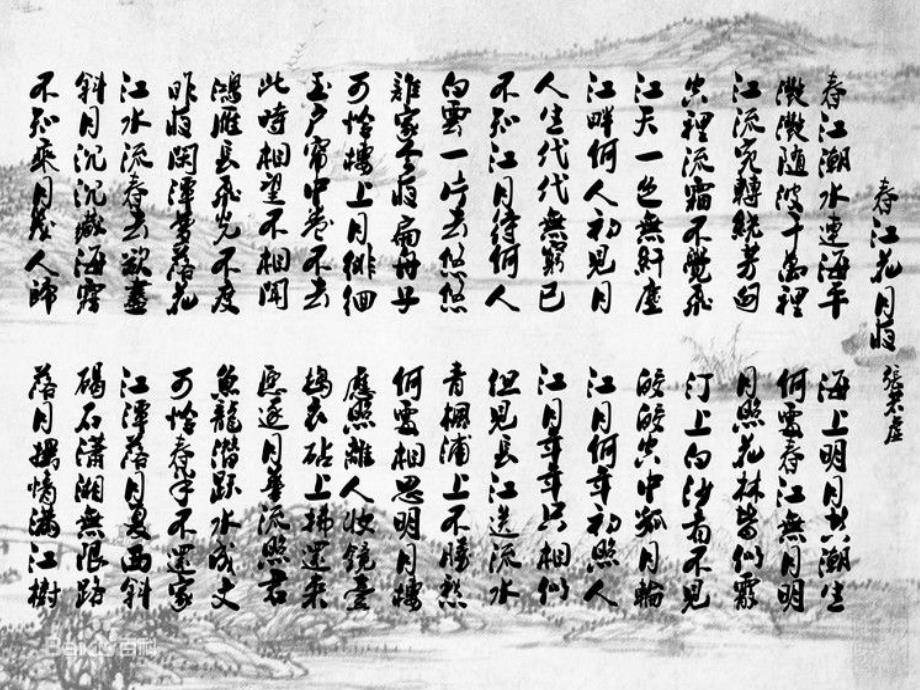 春江花月夜 張若虛
春江潮水連海平 海上明月共潮生
灩灩随波千萬裡 何處春江無月明
江流宛轉繞芳甸 月照花林皆似霰
空裡流霜不覺飛 汀上白沙看不見
江天一色無纤塵 皎皎空中孤月輪
江畔何人初見月 江月何年初照人
人生代代無窮已 江月年年只相似
不知江月待何人 但見長江送流水
白雲一片去悠悠 青楓浦上不勝愁
誰家今夜扁舟子 何處相思明月樓
可憐樓上月徘徊 應照離人妝鏡臺
玉戶簾中卷不去 搗衣砧上拂還來
此時相望不相聞 願逐月華流照君
鴻雁長飛光不度 魚龍潛躍水成文
昨夜閑潭夢落花 可憐春半不還家
江水流春去欲盡 江潭落月復西斜
斜月沉沉藏海霧 碣石瀟湘無限路
不知乘月幾人歸 落月搖情滿江樹
Baidu百科